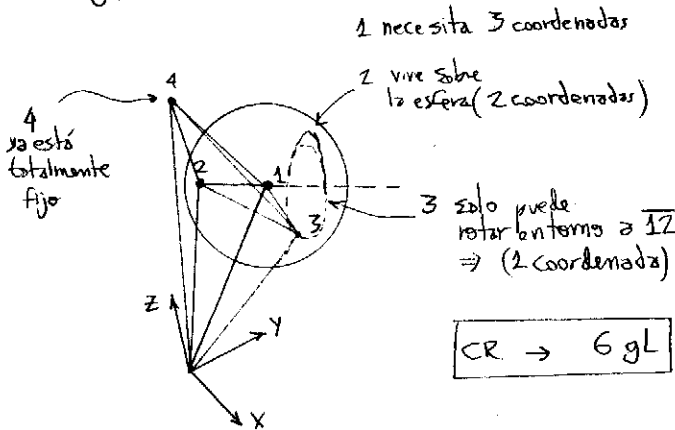 1 necesita 3 coordenadas
2 vive sobre
la esfera (2 coordenadas)
4
4
ya está
totalmente
fijo
2
1
3
3 solo puede
rotar entorno a 12
⇒ (1 coordenada)
Z
Y
X
CR → 6 gL